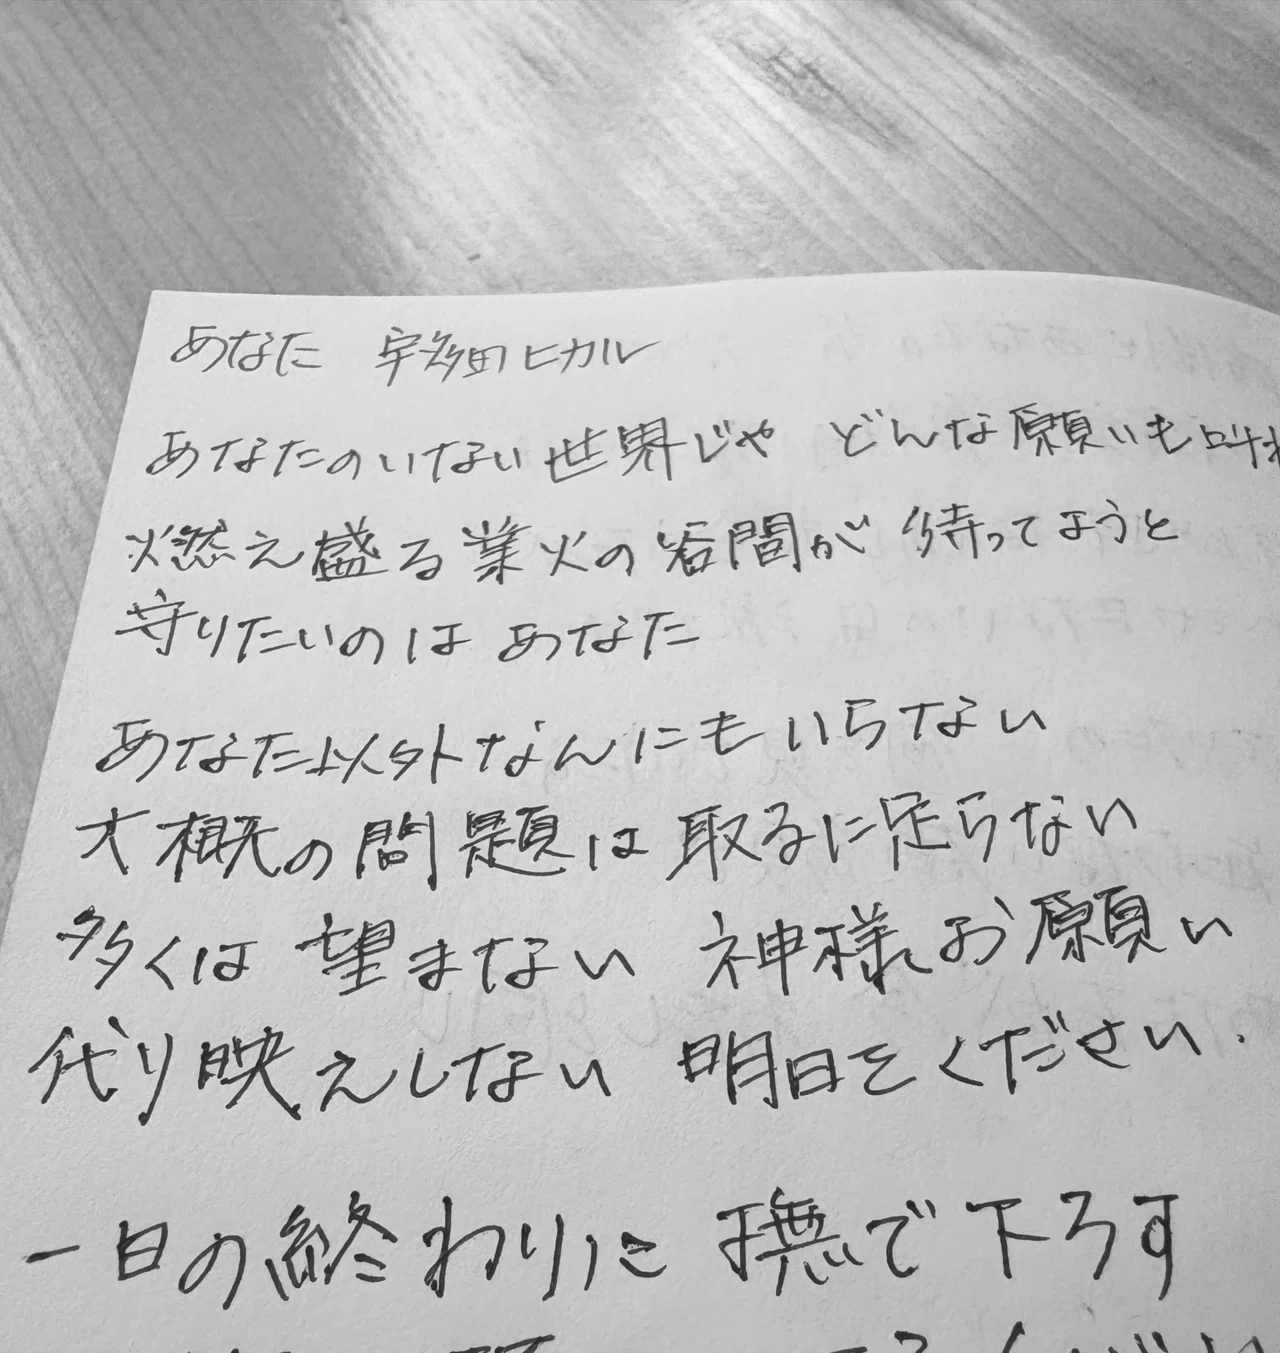 あなた 宇多田ヒカル
あなたのいない世界じゃ どんな願いも叶わ
燃え盛る業火の谷間が 待ってようと
守りたいのは あなた
あなた以外なんにもいらない
大概の問題は取るに足らない
多くは望まない 神様お願い
代り映えしない 明日をください.
一日の終わりに 撫で下ろす